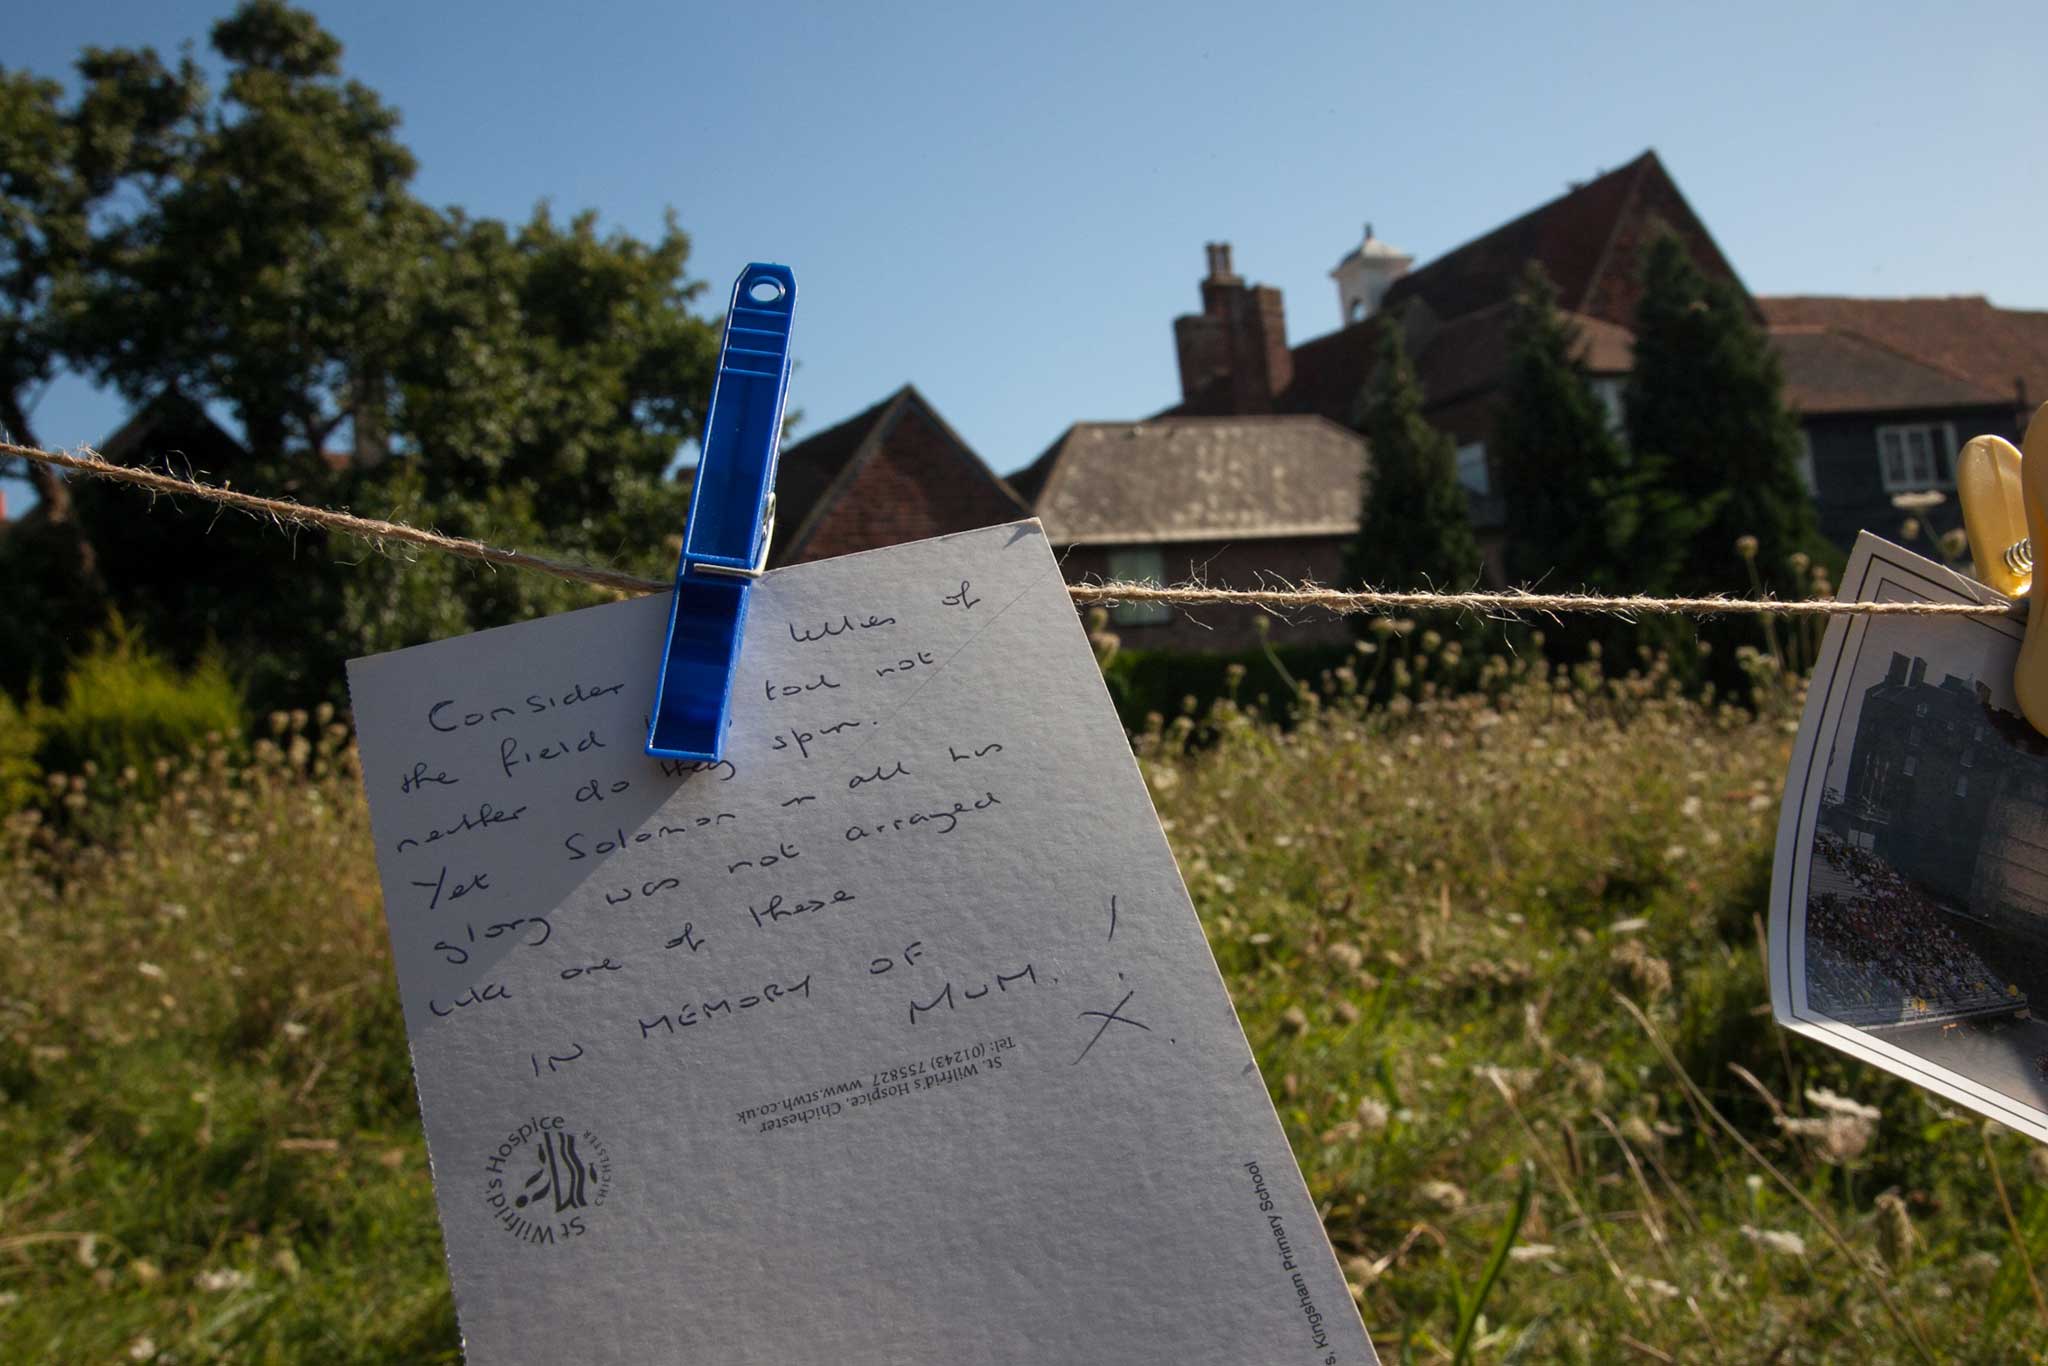 Consider lillies of
the field toil not
neither do they spin.
Yet Solomon in all his
glory was not arrayed
like one of these
IN MEMORY OF
MUM. !
X.
St. Wilfrid's Hospice, Chichester
Tel: (01243) 755827 www.stwh.co.uk
St Wilfrid's Hospice
CHICHESTER
s, Kingsham Primary School